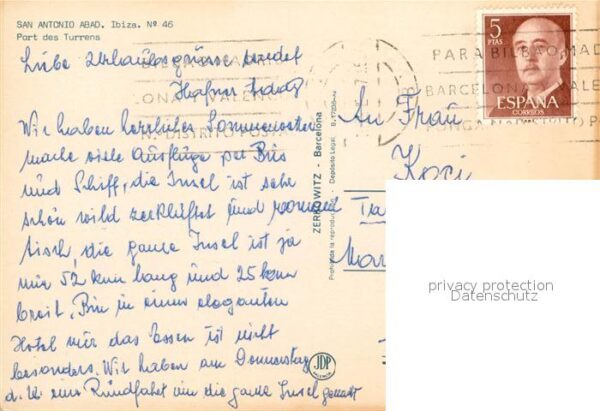 SAN ANTONIO ABAD. Ibiza. Nº 46
Port des Turrens
Liebe Urlaubsgrüsse sendet
Hafner
Wir haben herrliches Sommerwetter
mache viele Ausflüge per Bus
und Schiff, die Insel ist sehr
schön wild zerklüftet und roman
tisch, die ganze Insel ist ja
nur 52 km lang und 25 km
breit, Bin in einem eleganten
Hotel nur das Essen ist nicht
besonders. Wir haben am Donnerstag
d. W. eine Rundfahrt um die ganze Insel gemacht
ZERKOWITZ - Barcelona
Prohibida la reproducción - Depósito Legal B.
JDP
VALENCIA
5
PTAS
ESPAÑA
CORREOS
PARA BILBAO, MAD
BARCELONA VALE
PONGA Nº DISTRITO P
ONA VALENC
Nº DISTRITO
An Frau
Koci
privacy protection
Datenschutz